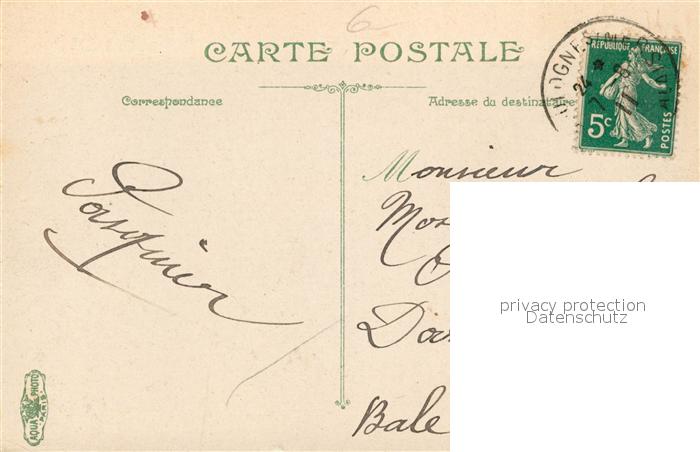 6
CARTE POSTALE
Correspondance
Adresse du destinataire
RÉPUBLIQUE FRANÇAISE
5c
POSTES
24 *
7 8
11
Monsieur
Pasquier
privacy protection
Datenschutz
Bale
AQUA PHOTO
PARIS